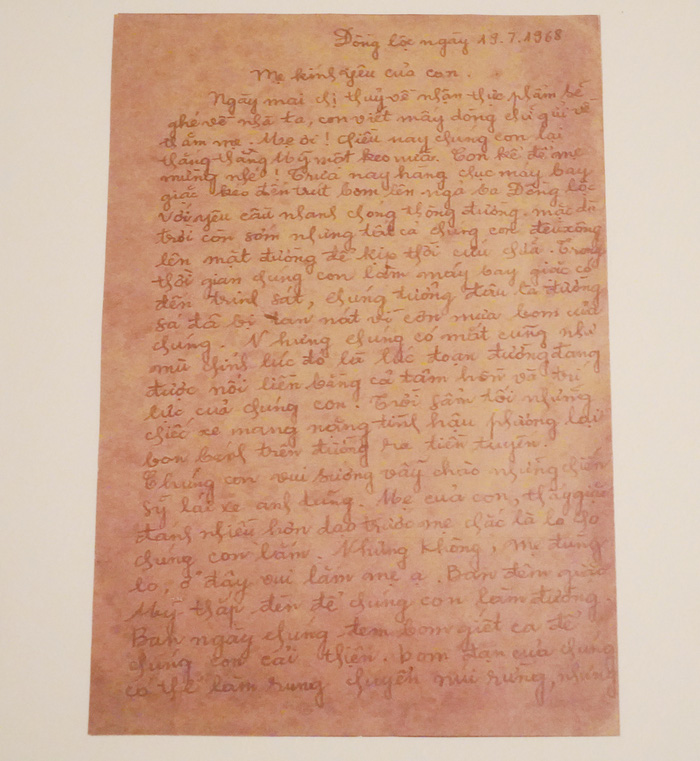 Đồng lộc ngày 19.7.1968
Mẹ kính yêu của con.
Ngày mai chị thuỷ về nhận thực phẩm sẽ
ghé về nhà ta, con viết mấy dòng chữ gửi về
thăm mẹ. Mẹ ơi! chiều nay chúng con lại
thắng thằng Mỹ một keo nữa. Con kể để mẹ
mừng nhé! Trưa nay hàng chục máy bay
giặc kéo đến trút bom lên ngã ba Đồng lộc
với yêu cầu nhanh chóng thông đường. mặc dù
trời còn sớm nhưng tất cả chúng con đều xông
lên mặt đường để kịp thời cứu chữa. Trong
thời gian chúng con làm máy bay giặc có
đến trinh sát, chúng tưởng đâu là đường
sá đã bị tan nát vì cơn mưa bom của
chúng. Nhưng chúng có mắt cũng như
mù chính lúc đó là lúc đoạn đường đang
được nối liền bằng cả tâm hồn và trí
lực của chúng con. Trời sẩm tối những
chiếc xe mang nặng tình hậu phương lại
bon bánh trên đường ra tiền tuyến.
Chúng con vui sướng vẫy chào những chiến
sỹ lái xe anh hùng. Mẹ của con, thấy giặc
đánh nhiều hơn dạo trước mẹ chắc là lo cho
chúng con lắm. Nhưng không, mẹ đừng
lo, ở đây vui lắm mẹ ạ. Ban đêm giặc
Mỹ thắp đèn để chúng con làm đường.
Ban ngày chúng đem bom giết cá để
chúng con cải thiện. bom đạn của chúng
có thể làm rung chuyển núi rừng, nhưng